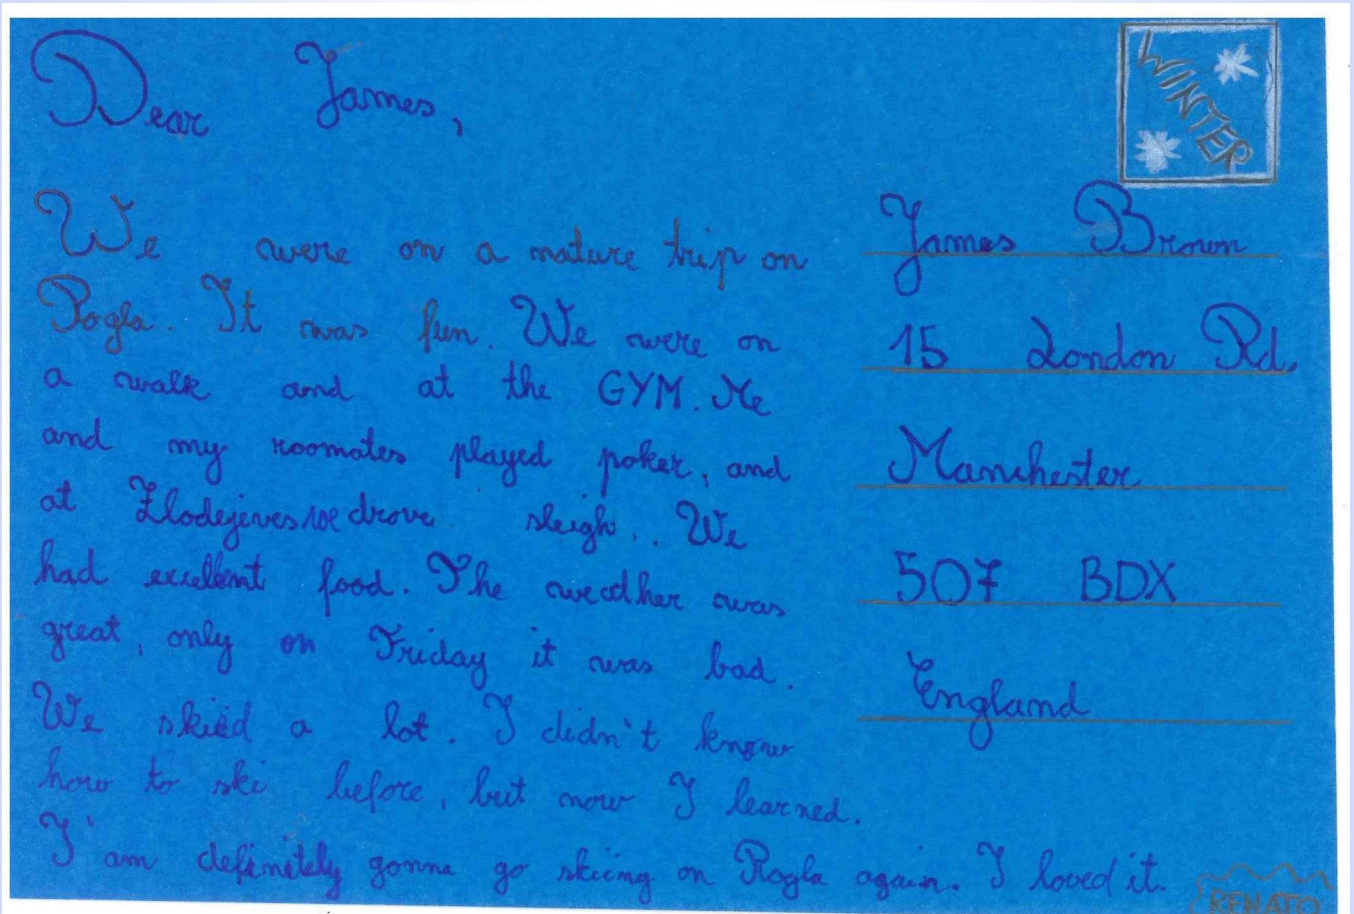 Dear James,
WINTER
We were on a nature trip on
Rogla. It was fun. We were on
a walk and at the GYM. Me
and my roomates played poker, and
at Zlodejeves we drove sleigh.. We
had excellent food. The weather was
great, only on Friday it was bad.
We skied a lot. I didn't know
how to ski before, but now I learned.
I'am definitely gonna go skiing on Rogla again. I loved it.
James Brown
15 London Rd.
Manchester
507 BDX
England
RENATO